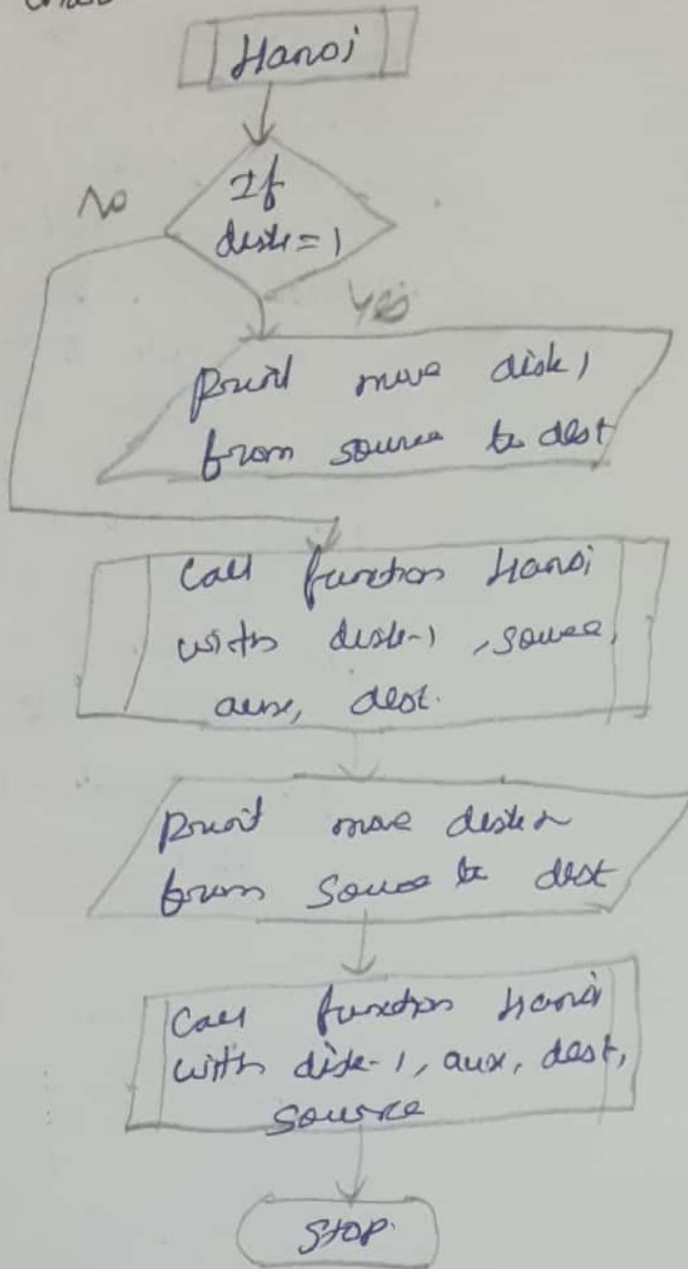 Hanoi
If
disk=1
No
Yes
Print move disk 1
from source to dest
Call function Hanoi
with disk-1, source,
aux, dest.
Print move disk n
from source to dest
Call function Hanoi
with disk-1, aux, dest,
source
STOP.